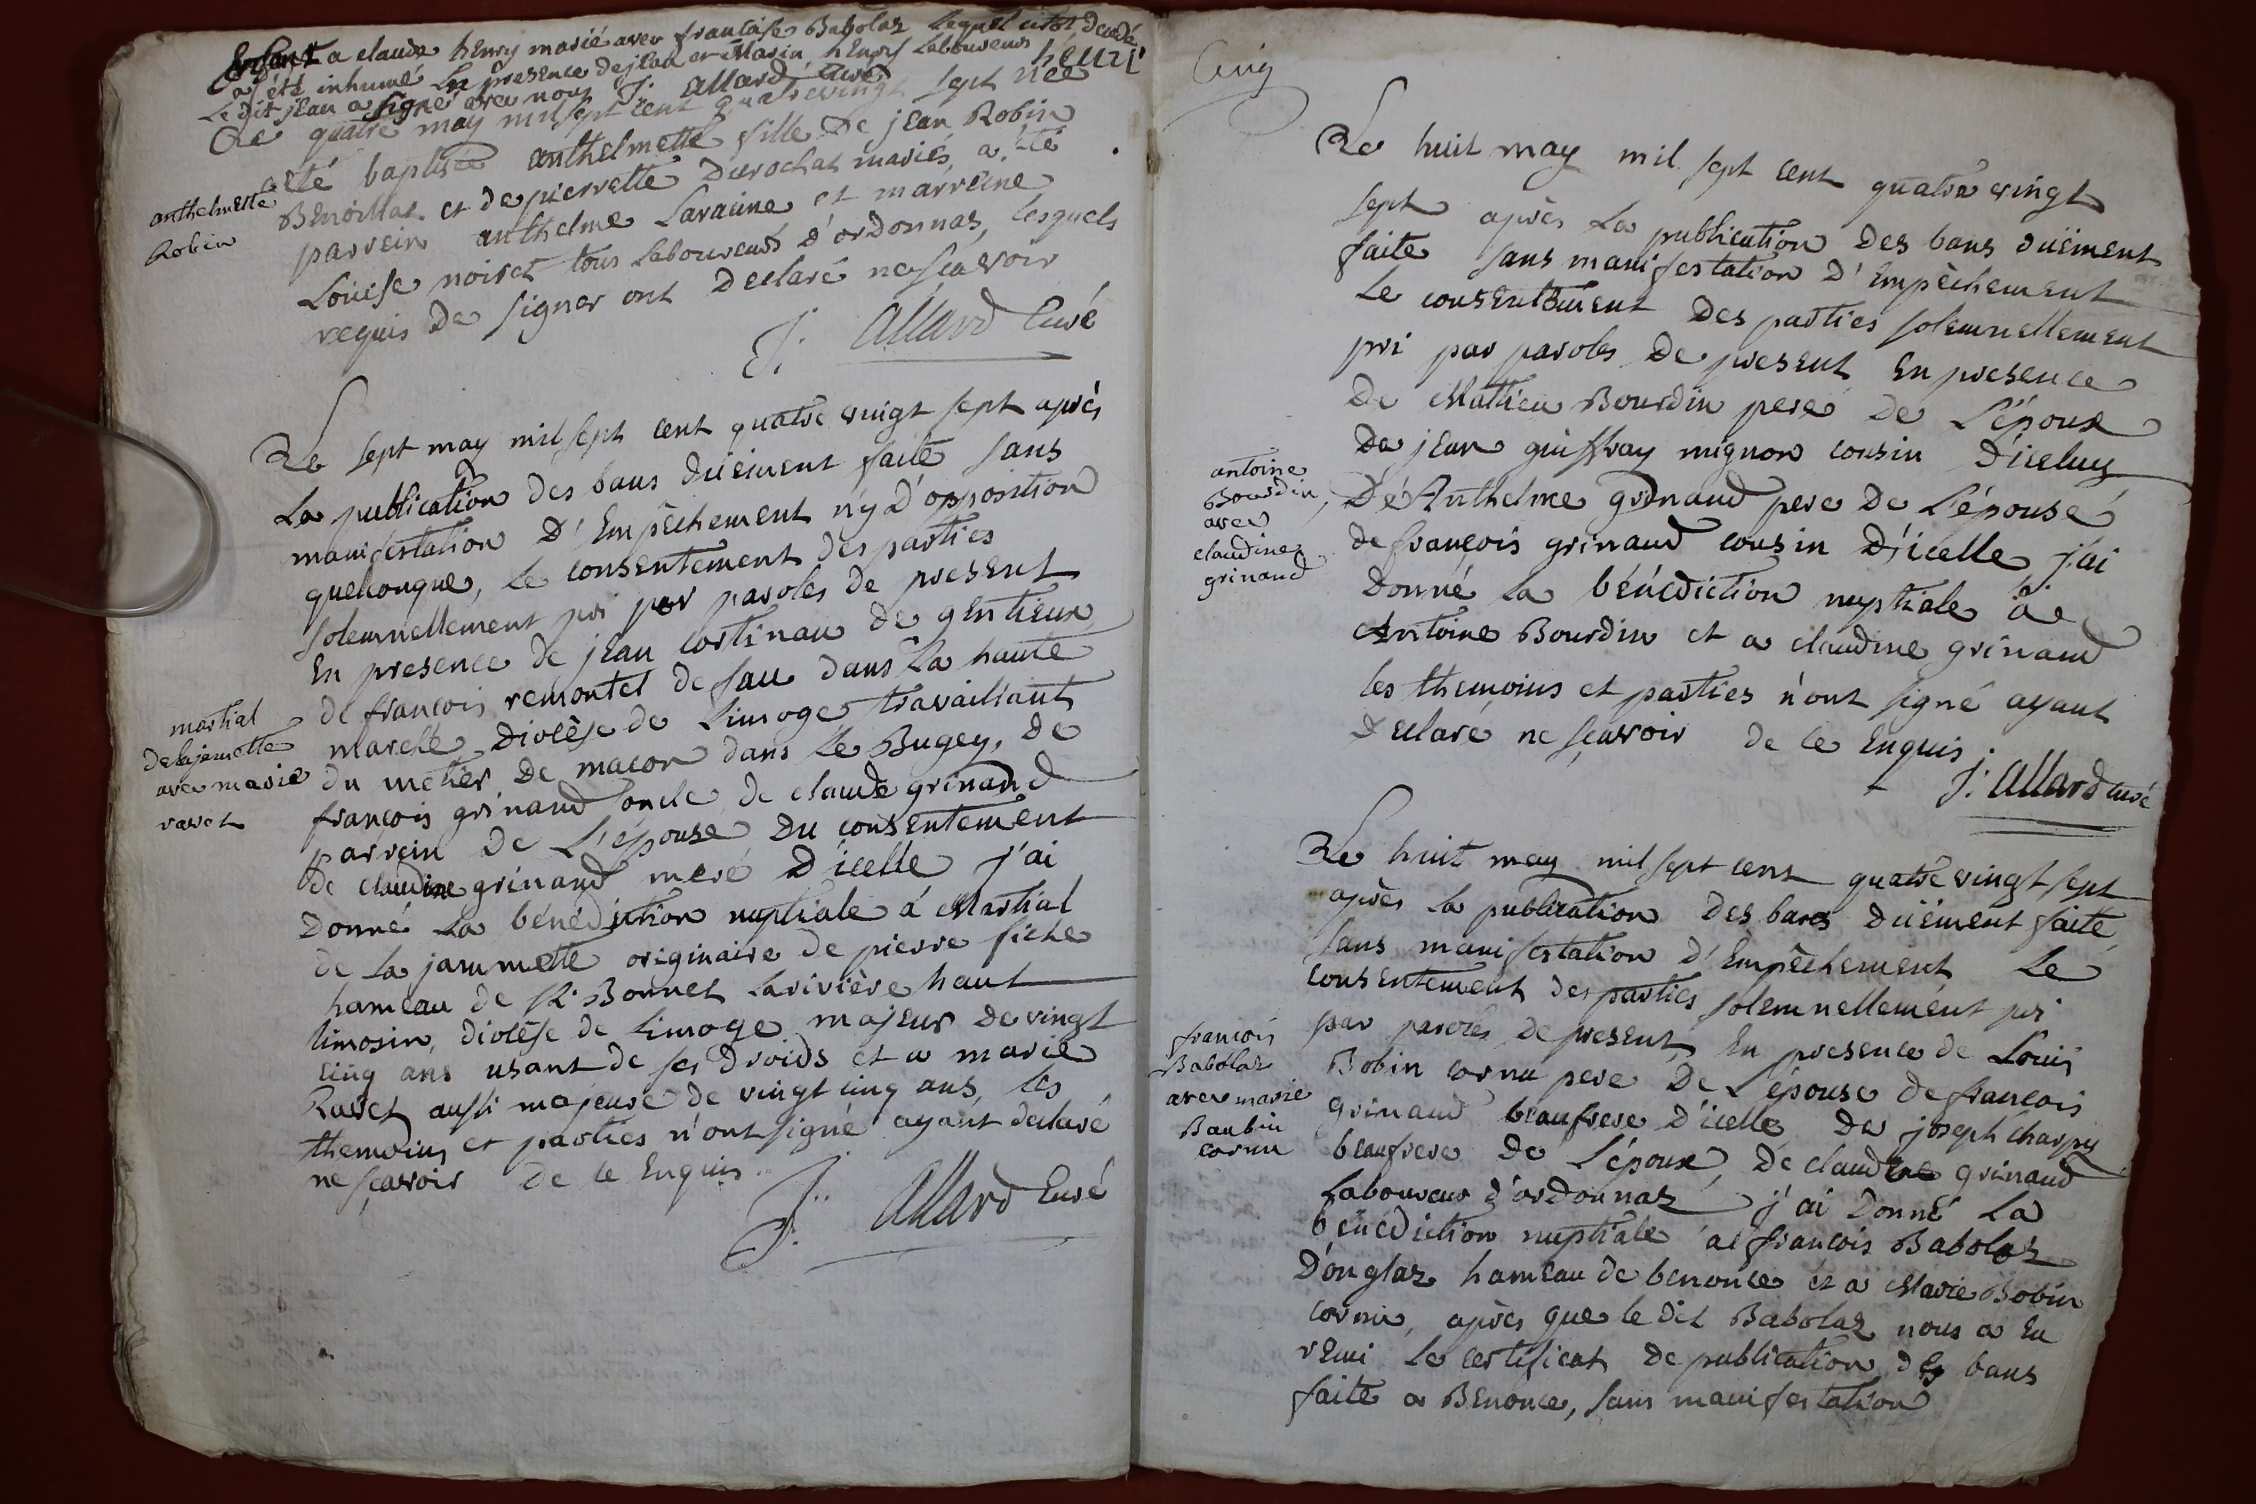 Enfant a claude henry marié avec francoise Babolaz lequel
a été inhumé En presence de jean et Marin henry Laboureurs
Le dit jean a signé avec nous J. allard Curé henri
Le quatre may mil sept cent quatre vingt sept née
été baptisée anthelmette fille De jean Robin
anthelmette
Robin
Benoittat et de pierrette Durochat mariés, a été
parrein anthelme Laraime et marreine
Loüise noiret tous Laboureurs d'ordonnaz, lesquels
requis De signer ont Declaré ne sçavoir
J. Allard Curé
Le sept may mil sept cent quatre vingt sept après
La publication des bans Düement faite sans
manifestation D'Empêchement n'y D'opposition
quelconque, Le consentement des parties
solemnellement pri par paroles de present
En presence de jean cortinau de gentieux
de françois remontel de fau dans La haute
marche Diocèse de Limoge travaillant
martial
delajamette
avec marie
ravet
du metier De macon dans Le Bugey, De
françois grinand oncle, de claude grinand
parrein De L'épouse Du consentement
De claudine grinand meré D'icelle j'ai
Donné La bénédiction nuptiale á Martial
de La jammette originaire de pierre fiche
hameau de St. Bonnet Larivière haut
limosin, diocèse de Limoge majeur De vingt
cinq ans usant de ses Droids et a marie
Ravet aussi majeure de vingt cinq ans, les
themoins et parties n'ont signé ayant declaré
ne sçavoir De ce Enquis.
J. Allard Curé
Cinq
Le huit may mil sept cent quatre vingt
sept après La publication Des bans düement
faite sans manifestation D'Empêchement
Le consentement Des parties solemnellement
pri par paroles De present En presence
De Mattieu Bourdin pere De L'époux
De jean guiffray mignon cousin D'iceluy
antoine
Bourdin
avec
claudine
grinand
Dé Anthelme grinand pere De L'épousé
de françois grinand cousin D'icelle j'ai
Donné La bénédiction nuptiale à
Antoine Bourdin et a claudine grinand
les themoins et parties n'ont signé ayant
Declaré ne sçavoir de ce Enquis.
J. Allard curé
Le huit may mil sept cent quatre vingt sept
après La publication Des bans Düement faite,
sans manifestation D'Empêchement Le
consentement des parties solemnellement pri
par paroles de present, En presence de Louis
françois
Babolaz
avec marie
Baubin
cornu
Bobin cornu pere De L'épouse De francois
grinand beaufrere D'icelle De joseph charpy
beaufrere De L'époux, De claudine grinand
Laboureur d'ordonnaz j'ai Donné La
bénédiction nuptiale a françois Babolaz
D'onglaz hameau de benonce et a Marie Bobin
cornu, après que le dit Babolaz nous a eu
remi Le certificat De publication des bans
faite a Benonce, sans manifestation